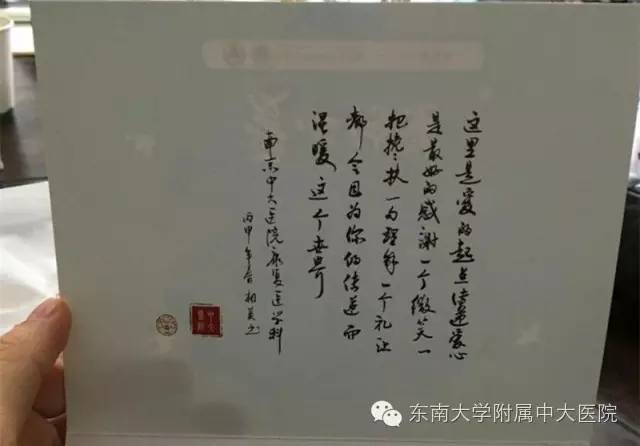 这里是爱的起点传递爱心
是最好的感谢一个微笑一
把搀扶一句理解一个礼让
都会因为你的传递而
温暖这个世界
南京中大医院康复医学科
丙申年
东南大学附属中大医院